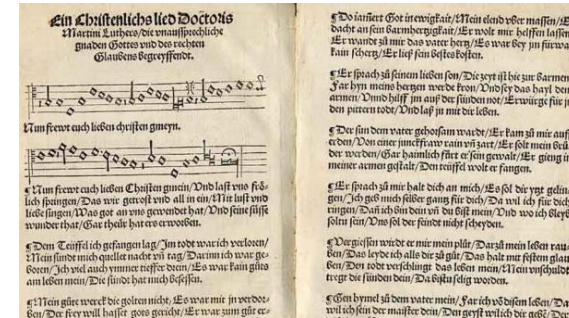 Ein Christenlichs lied Doctoris
Martini Luthers/die vnaussprechliche
gnaden Gottes vnd des rechten
Glaubens begreyffendt.
Nun frewt euch lieben christen gmeyn.
¶Nun frewt euch lieben Christen gmein/Vnd last vns frö-
lich springen/Das wir getrost vnd all in ein/Mit lust vnd
liebe singen/Was got an vns gewendet hat/Vnd seine süsse
wunder that/Gar theür hat ers erworben.
¶Dem Teüffel ich gefangen lag/Im todt war ich verloren/
Mein sünd mich quellet nacht vñ tag/Darinn ich war ge-
boren/Ich viel auch ymmer tieffer dreen/Es war kain güts
am leben mein/Die sünd hat mich besessen.
¶Mein güte werck die golten nicht/Es war mit jn verdor-
ben/Der frey will hasset gots gericht/Er war zum güt er-
¶Do iamert Got in ewigkait/Mein elend vber massen/
dacht an sein barmhertzigkait/Er wolt mir helffen lassen
Er wandt zů mir das vater hertz/Es war bey jm fürwa
kain schertz/Er ließ sein bestes kosten.
¶Er sprach zů seinem lieben son/Die zeyt ist hie zur barmen
Far hyn meins hertzen werde kron/Vnd sey das hayl den
armen/Vnnd hilff jm auß der sünden not/Erwürge für jn
den pittern todt/Vnd laß jn mit dir leben.
¶Der sun dem vater gehorsam wardt/Er kam zů mir auff
erden/Von einer junckfraw rain vñ zart/Er solt mein brů
der werden/Gar haimlich fürt er sein gewalt/Er gieng in
meiner armen gestalt/Den teüffel wolt er fangen.
¶Er sprach zů mir halt dich an mich/Es sol dir yetz gelin
gen/Ich geb mich selber gantz für dich/Da wil ich für dich
ringen/Dañ ich bin dein vñ du bist mein/Vnd wo ich bleyb
soltu sein/Vns sol der feind nicht scheyden.
¶Vergiessen wirdt er mir mein plůt/Darzů mein leben rau
ben/Das leyde ich alls dir zů gůt/Das halt mit festem glau
ben/Den todt verschlingt das leben mein/Mein vnschuldt
tregt die sünde dein/Da bistu selig worden.
¶Gen hymel zů dem vater mein/Far ich võ disem leben/Da
wil ich sein der maister dein/Den geyst wil ich dir gebē/Der